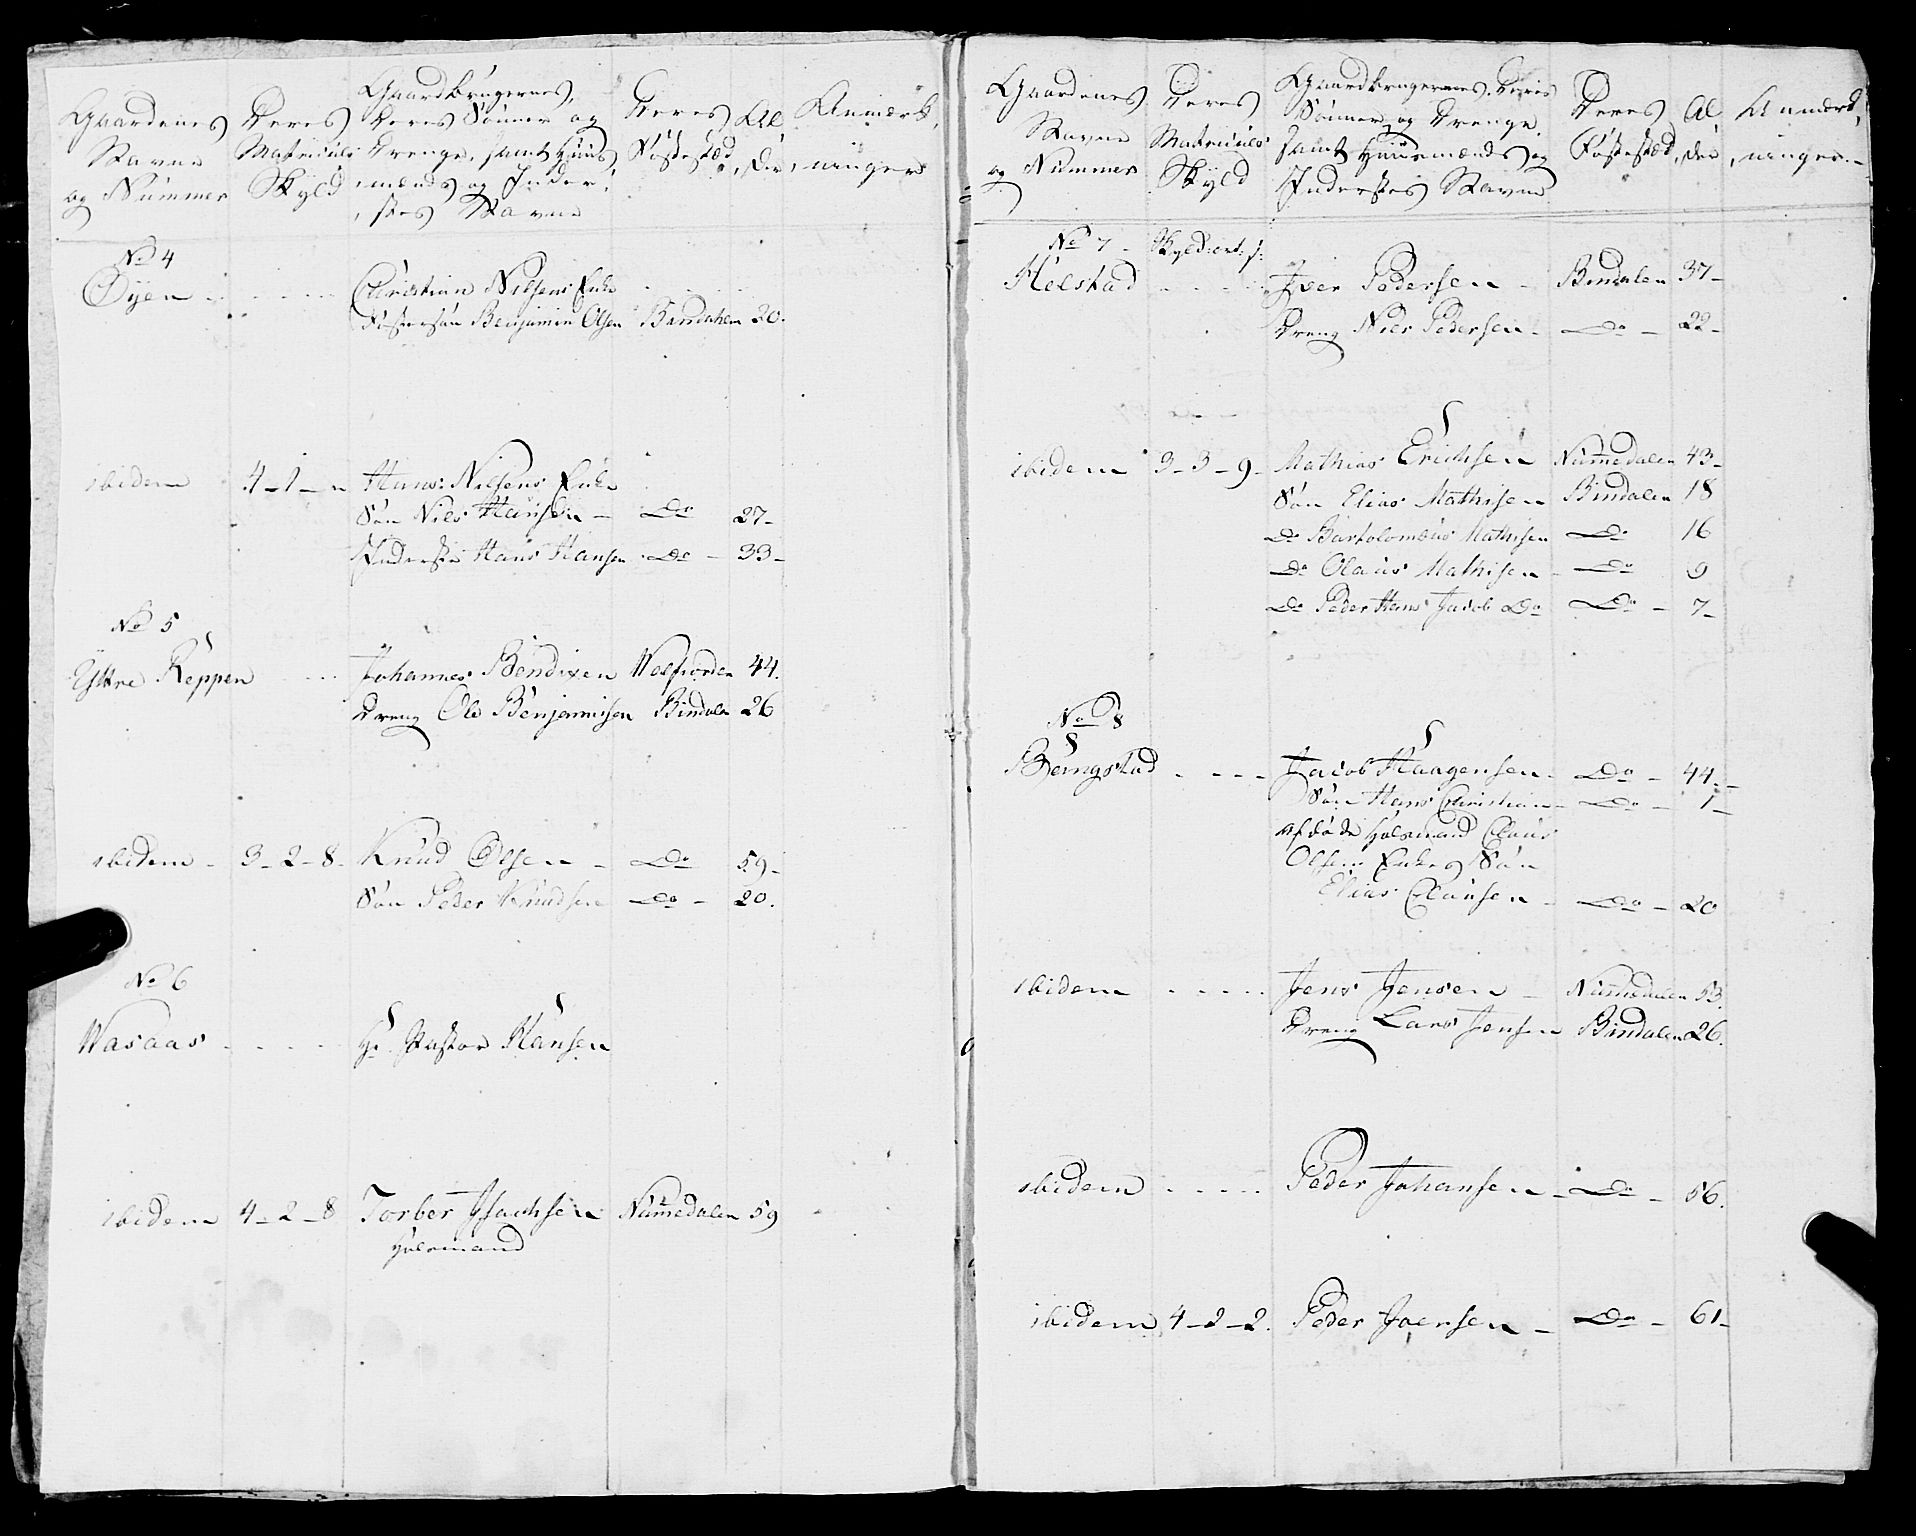 Gaardenes
Navne
og Nummer
Deres
Matriculs
Skyld
Gaardbrugernes,
Deres Sönner og
Drenge, samt Huus
mænds og Inder,
stes Navne
Deres
Födestæd
Al
der
Anmærk,
ninger
No 4
Öyen - - - - - Christian Nilsens Enke - - - -
Fostersön Benjamin Olsen Bindalen 20.
ibidem 4-1-" Hans Nilsens Enke
Sön Niels Hansen - Do 27-
Inderste Hans Hansen Do - 33-
No 5
Yttre Reppen - - - Johannes Bendixen Welfiorden 44.
Dreng Ole Benjaminsen Bindalen 26
ibidem - 3-2-8- Knud Olsen - Do 59-
Sön Peder Knudsen Do - 20.
No 6
Wasaas - - - - - Hr Pastor Hansen
ibidem 4-2-8 Torber Isachsen Nummedalen 59
Huusmand
Gaardenes
Navne
og Nummer
Deres
Matriculs
Skyld
Gaardbrugernes, Deres
Sönner og Drenge,
samt Huusmænds og
Inderstes Navne
Deres
Födestæd
Al
der
Anmærk,
ninger
No 7 - Skyld: ort: s:
Helstad - - - - - Iver Pedersen - Bindalen 37-
Dreng Niels Pedersen - Do - 22-
ibidem 3-3-9- Mathias Erichsen Nummedalen 43-
Sön Elias Mathisen Bindalen 18
Do Bartolomæus Mathisen Do 16
Do Olaus Mathisen - Do 9
Do Peder Hans Jacob Do Do - 7-
No 8
Bengstad - - - - Jacob Haagensen - Do - 44.-
Sön Hans Christian - Do - 1-
afdöde Huusmand Claus
Olsens Enke og Sön
Elias Clausen - Do - 20
ibidem - - - - - Jens Jensen - Nummedalen 53.
Dreng Lars Jensen Bindalen 26.
ibidem - - - - - Peder Johansen - Do - 56.
ibidem 4-2-2. Peder Joensen - Do - 61-